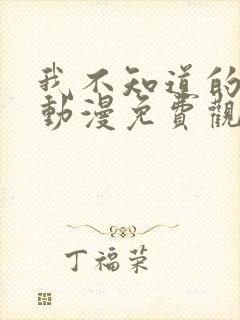 我不知道的
動漫免費觀
丁福荣